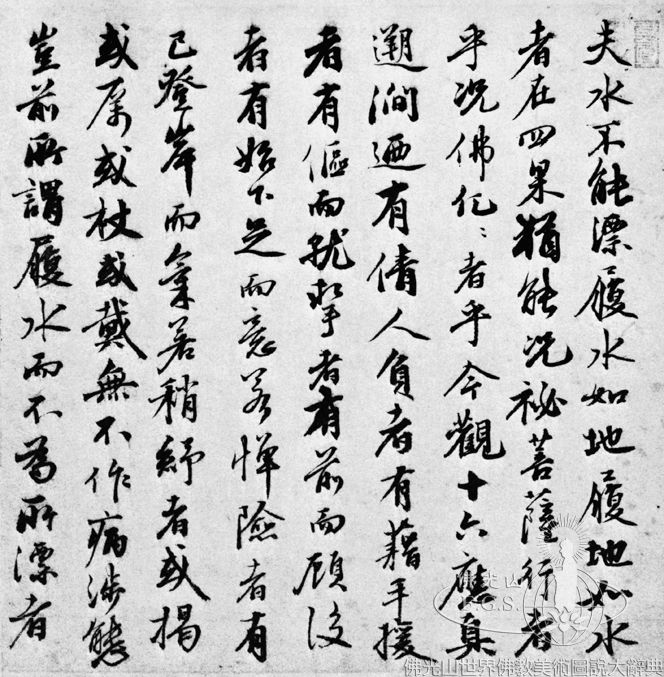 夫水不能漂履水如地履地如水
者在四果猶能況祕菩薩行者
乎況佛者乎今觀十六應真
遡澗迺有倩人負者有藉手援
者有傴而就者有前而顧後
者有始下足而意若憚險者有
已登岸而氣若稍紓者或揭
或厲或杖或戴無不作病涉態
豈前所謂履水而不為所漂者
佛光山
F.G.S.
佛光山世界佛教美術圖說大辭典